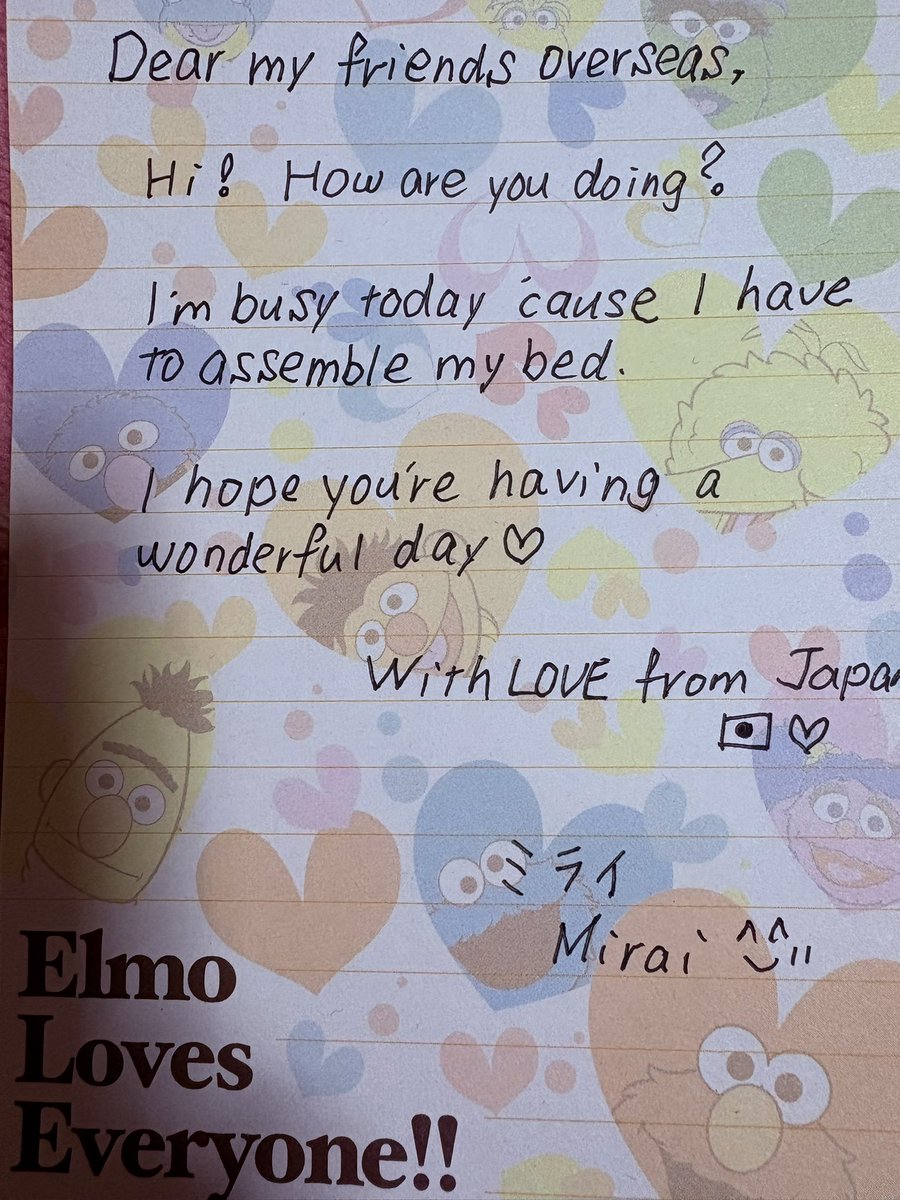 Dear my friends overseas,
Hi! How are you doing?
I'm busy today 'cause I have
to assemble my bed.
I hope you're having a
wonderful day♡
With LOVE from Japan
♡
ミライ
Mirai ^^
Elmo
Loves
Everyone!!